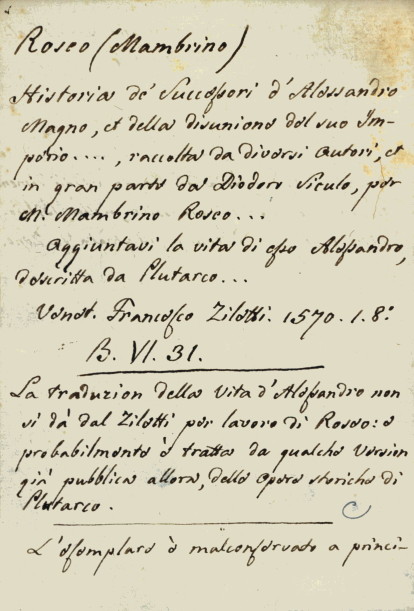 Roseo (Mambrino)
Historia de' Successori d'Alessandro
Magno, et della disunione del suo Im-
perio...., raccolta da diversi Autori, et
in gran parte da Diodoro Siculo, per
M. Mambrino Roseo...
Aggiuntavi la vita di esso Alessandro,
descritta da Plutarco...
Venet. Francesco Ziletti. 1570. 1. 8.°
B. VI. 31.
La traduzion della vita d'Alessandro non
si dà dal Ziletti per lavoro di Roseo: e
probabilmente è tratta da qualche version
già pubblica allora, delle opere storiche di
Plutarco.
L'esemplare è malconservato a princi-